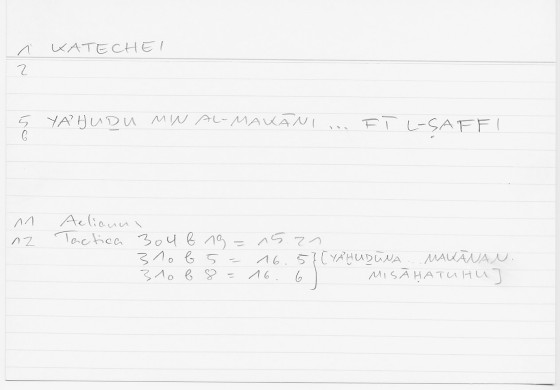 1 KATECHEI
2
5 YAʾḪUḎU MIN AL-MAKĀNI ... FĪ L-ṢAFFI
6
11 Aelianus
12 Tactica 304 b 19 = 15 21
310 b 5 = 16. 5 } [YAʾḪUḎŪNA MAKĀNAN
310 b 8 = 16. 6 MISĀḤATUHU]